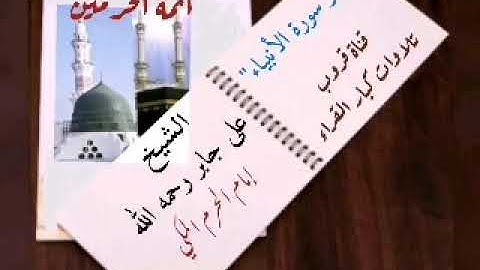 أئمة الحرمين
سورة الأنبياء"
قناة قروب
تلاوات كبار القراء
الشيخ
علي جابر رحمه الله
إمام الحرم المكي